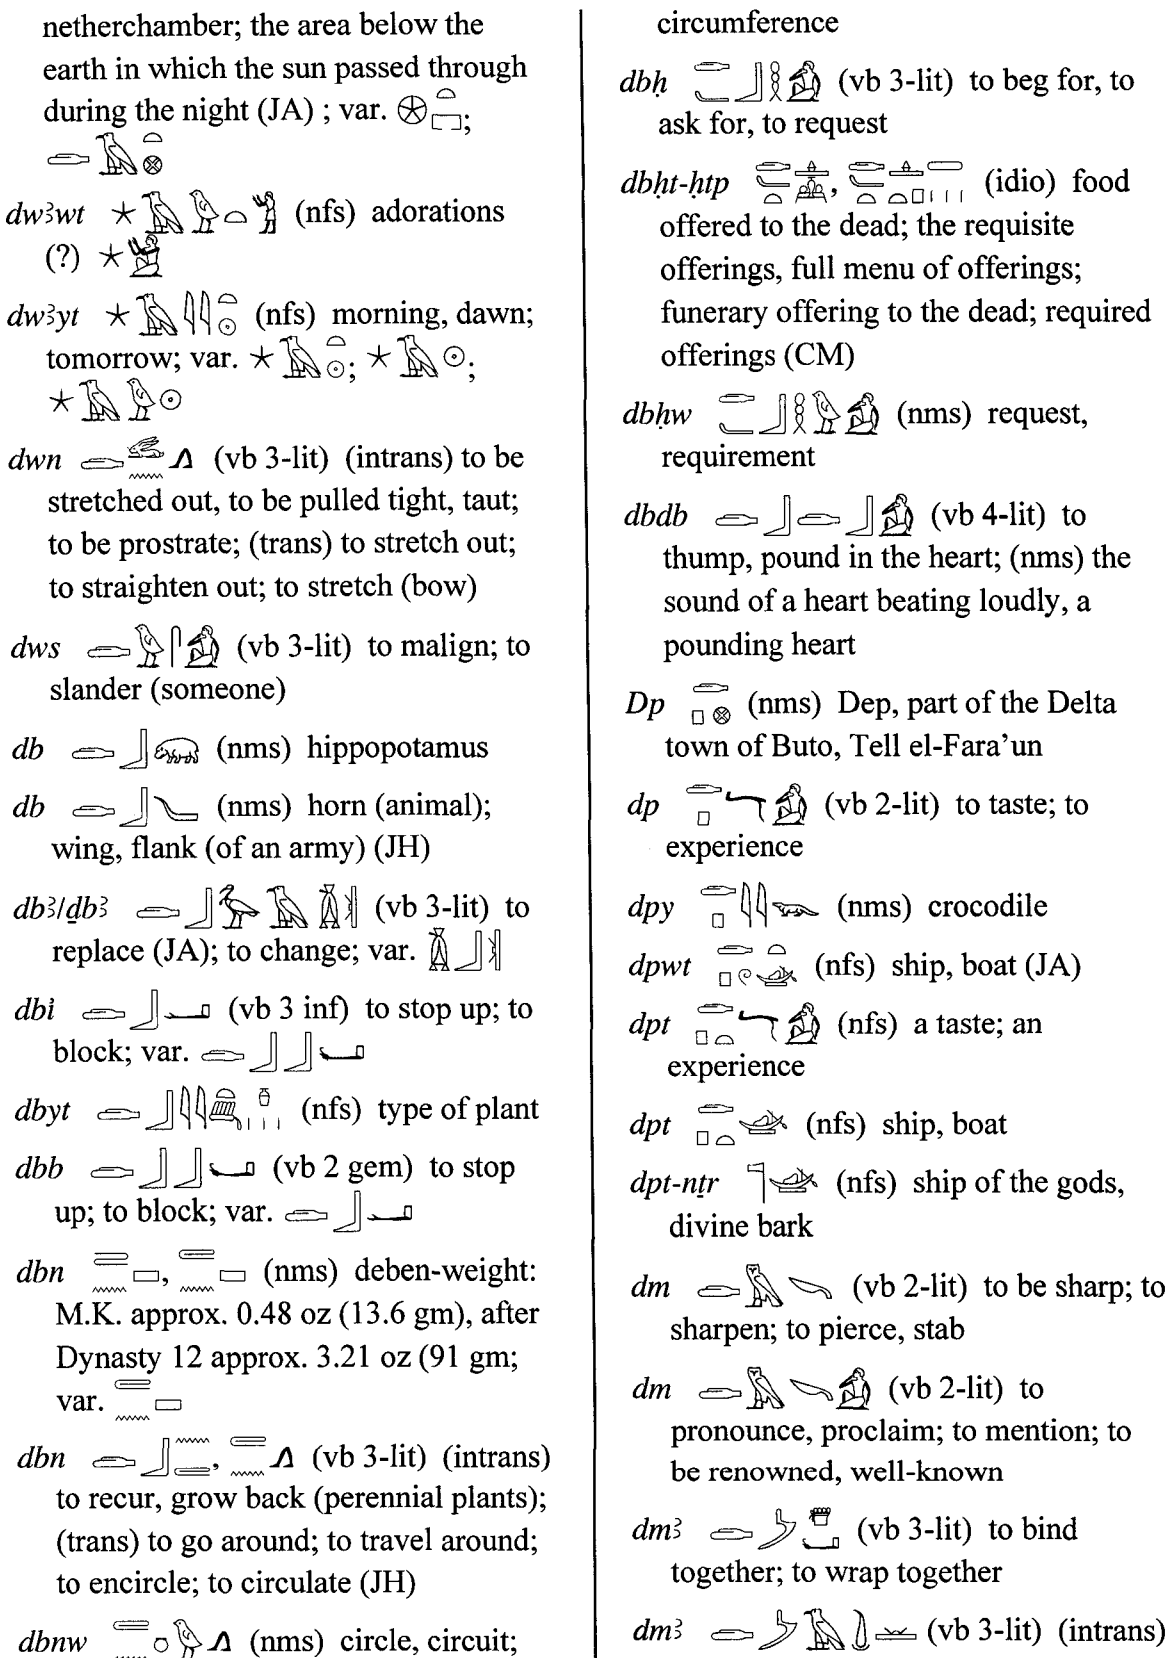 netherchamber; the area below the
earth in which the sun passed through
during the night (JA) ; var. 𓇽𓏏𓉐;
𓂧𓅓𓏏𓊖
dwꜣwt 𓇼𓄿𓅱𓏏𓀢 (nfs) adorations
(?) 𓇼𓀃
dwꜣyt 𓇼𓄿𓇌𓏏𓇳 (nfs) morning, dawn;
tomorrow; var. 𓇼𓄿𓏏𓇳; 𓇼𓄿𓇳;
𓇼𓄿𓅱𓇳
dwn 𓂧𓃹𓈖𓂻 (vb 3-lit) (intrans) to be
stretched out, to be pulled tight, taut;
to be prostrate; (trans) to stretch out;
to straighten out; to stretch (bow)
dws 𓂧𓅱𓋴𓀁 (vb 3-lit) to malign; to
slander (someone)
db 𓂧𓃀𓃯 (nms) hippopotamus
db 𓂧𓃀𓄏 (nms) horn (animal);
wing, flank (of an army) (JH)
dbꜣ/ḏbꜣ 𓂧𓃀𓅡𓄿 (vb 3-lit) to
replace (JA); to change; var.
dbỉ 𓂧𓃀𓂝 (vb 3 inf) to stop up; to
block; var. 𓂧𓃀𓃀𓂝
dbyt 𓂧𓃀𓇌 (nfs) type of plant
dbb 𓂧𓃀𓃀𓂝 (vb 2 gem) to stop
up; to block; var. 𓂧𓃀𓂝
dbn (nms) deben-weight:
M.K. approx. 0.48 oz (13.6 gm), after
Dynasty 12 approx. 3.21 oz (91 gm;
var.
dbn 𓂧𓃀𓈖 (vb 3-lit) (intrans)
to recur, grow back (perennial plants);
(trans) to go around; to travel around;
to encircle; to circulate (JH)
dbnw (nms) circle, circuit;
circumference
dbḥ 𓂧𓃀𓎛𓀁 (vb 3-lit) to beg for, to
ask for, to request
dbḥt-ḥtp (idio) food
offered to the dead; the requisite
offerings, full menu of offerings;
funerary offering to the dead; required
offerings (CM)
dbḥw 𓂧𓃀𓎛𓅱𓀁 (nms) request,
requirement
dbdb 𓂧𓃀𓂧𓃀𓀁 (vb 4-lit) to
thump, pound in the heart; (nms) the
sound of a heart beating loudly, a
pounding heart
Dp 𓂧𓊪𓊖 (nms) Dep, part of the Delta
town of Buto, Tell el-Fara’un
dp 𓂧𓊪𓄓𓀁 (vb 2-lit) to taste; to
experience
dpy 𓂧𓊪𓇌𓆊 (nms) crocodile
dpwt 𓂧𓊪𓏲𓏏𓊛 (nfs) ship, boat (JA)
dpt 𓂧𓊪𓏏𓄓𓀁 (nfs) a taste; an
experience
dpt 𓂧𓊪𓏏𓊛 (nfs) ship, boat
dpt-nṯr 𓊹𓊛 (nfs) ship of the gods,
divine bark
dm 𓂧𓅓𓌪 (vb 2-lit) to be sharp; to
sharpen; to pierce, stab
dm 𓂧𓅓𓌪𓀁 (vb 2-lit) to
pronounce, proclaim; to mention; to
be renowned, well-known
dmꜣ (vb 3-lit) to bind
together; to wrap together
dmꜣ (vb 3-lit) (intrans)